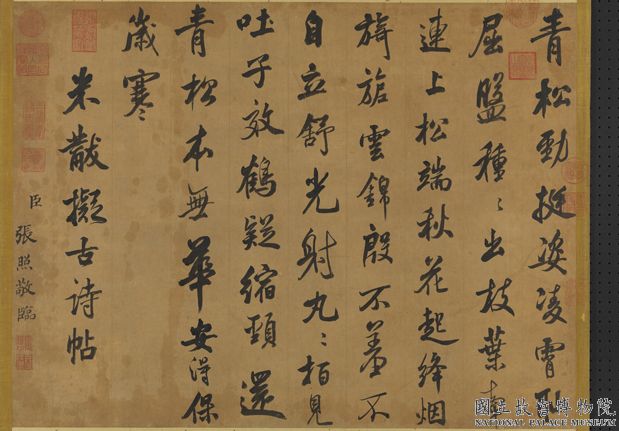 青松勁挺姿凌霄耻
屈盤種〻出枝葉牽
連上松端秋花起絳烟
旖旎雲錦殷不羞不
自立舒光射丸〻柏見
吐子效鶴疑縮頸還
青松本無華安得保
歲寒
米黻擬古詩帖
臣張照敬臨
國立故宮博物院
NATIONAL PALACE MUSEUM